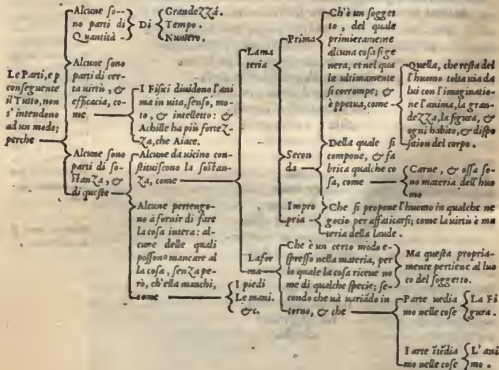 Le Parti, e p
conseguente
il Tutto, non
s'intendono
ad un modo;
perche
Alcune so-
no parti di
Quantità
Di
Grandezza.
Tempo.
Numero.
Alcune sono
parti di cer-
ta uirtù, &
efficacia, co-
me
I Fisici diuidono l'ani
ma in uita, senso, mo-
to, & intelletto: &
Achille ha più fortez-
za, che Aiace.
Alcune sono
parti di so-
stanza, &
di queste
Alcune da uicino con-
stituiscono la sostan-
za, come
Alcune pertengo-
no à fornir di fare
la cosa intera: al-
cune delle quali
possono mancare al
la cosa, senza pe-
rò, ch'ella manchi,
come
I piedi
Le mani.
&c.
La ma
teria
Prima
Ch'è un sogget
to, del quale
primieramente
alcuna cosa si ge
nera, et nel qua
le ultimamente
si corrompe; &
è ppetua, come
Quella, che resta del
l'huomo tolta uia da
lui con l'imaginatio-
ne l'anima, la gran-
dezza, la figura, &
ogni habito, & dispo
sition del corpo.
Secon
da
Della quale si
compone, & fa
brica qualche co
sa, come
Carne, & ossa so-
no materia dell'huo
mo
Impro
pria
Che si propone l'huomo in qualche ne
gocio per affaticarsi; come la uirtù è ma
teria della laude.
La for
ma
Che è un certo modo e-
spresso nella materia, per
lo quale la cosa riceue no
me di qualche specie; se-
condo che uà uariádo in
torno, & che
Ma questa propria-
mente pertiene al luo
co del soggetto.
Parte uedia
mo nelle cose
La Fi
gura.
Parte itédia
mo nelle cose
L'ani
mo.